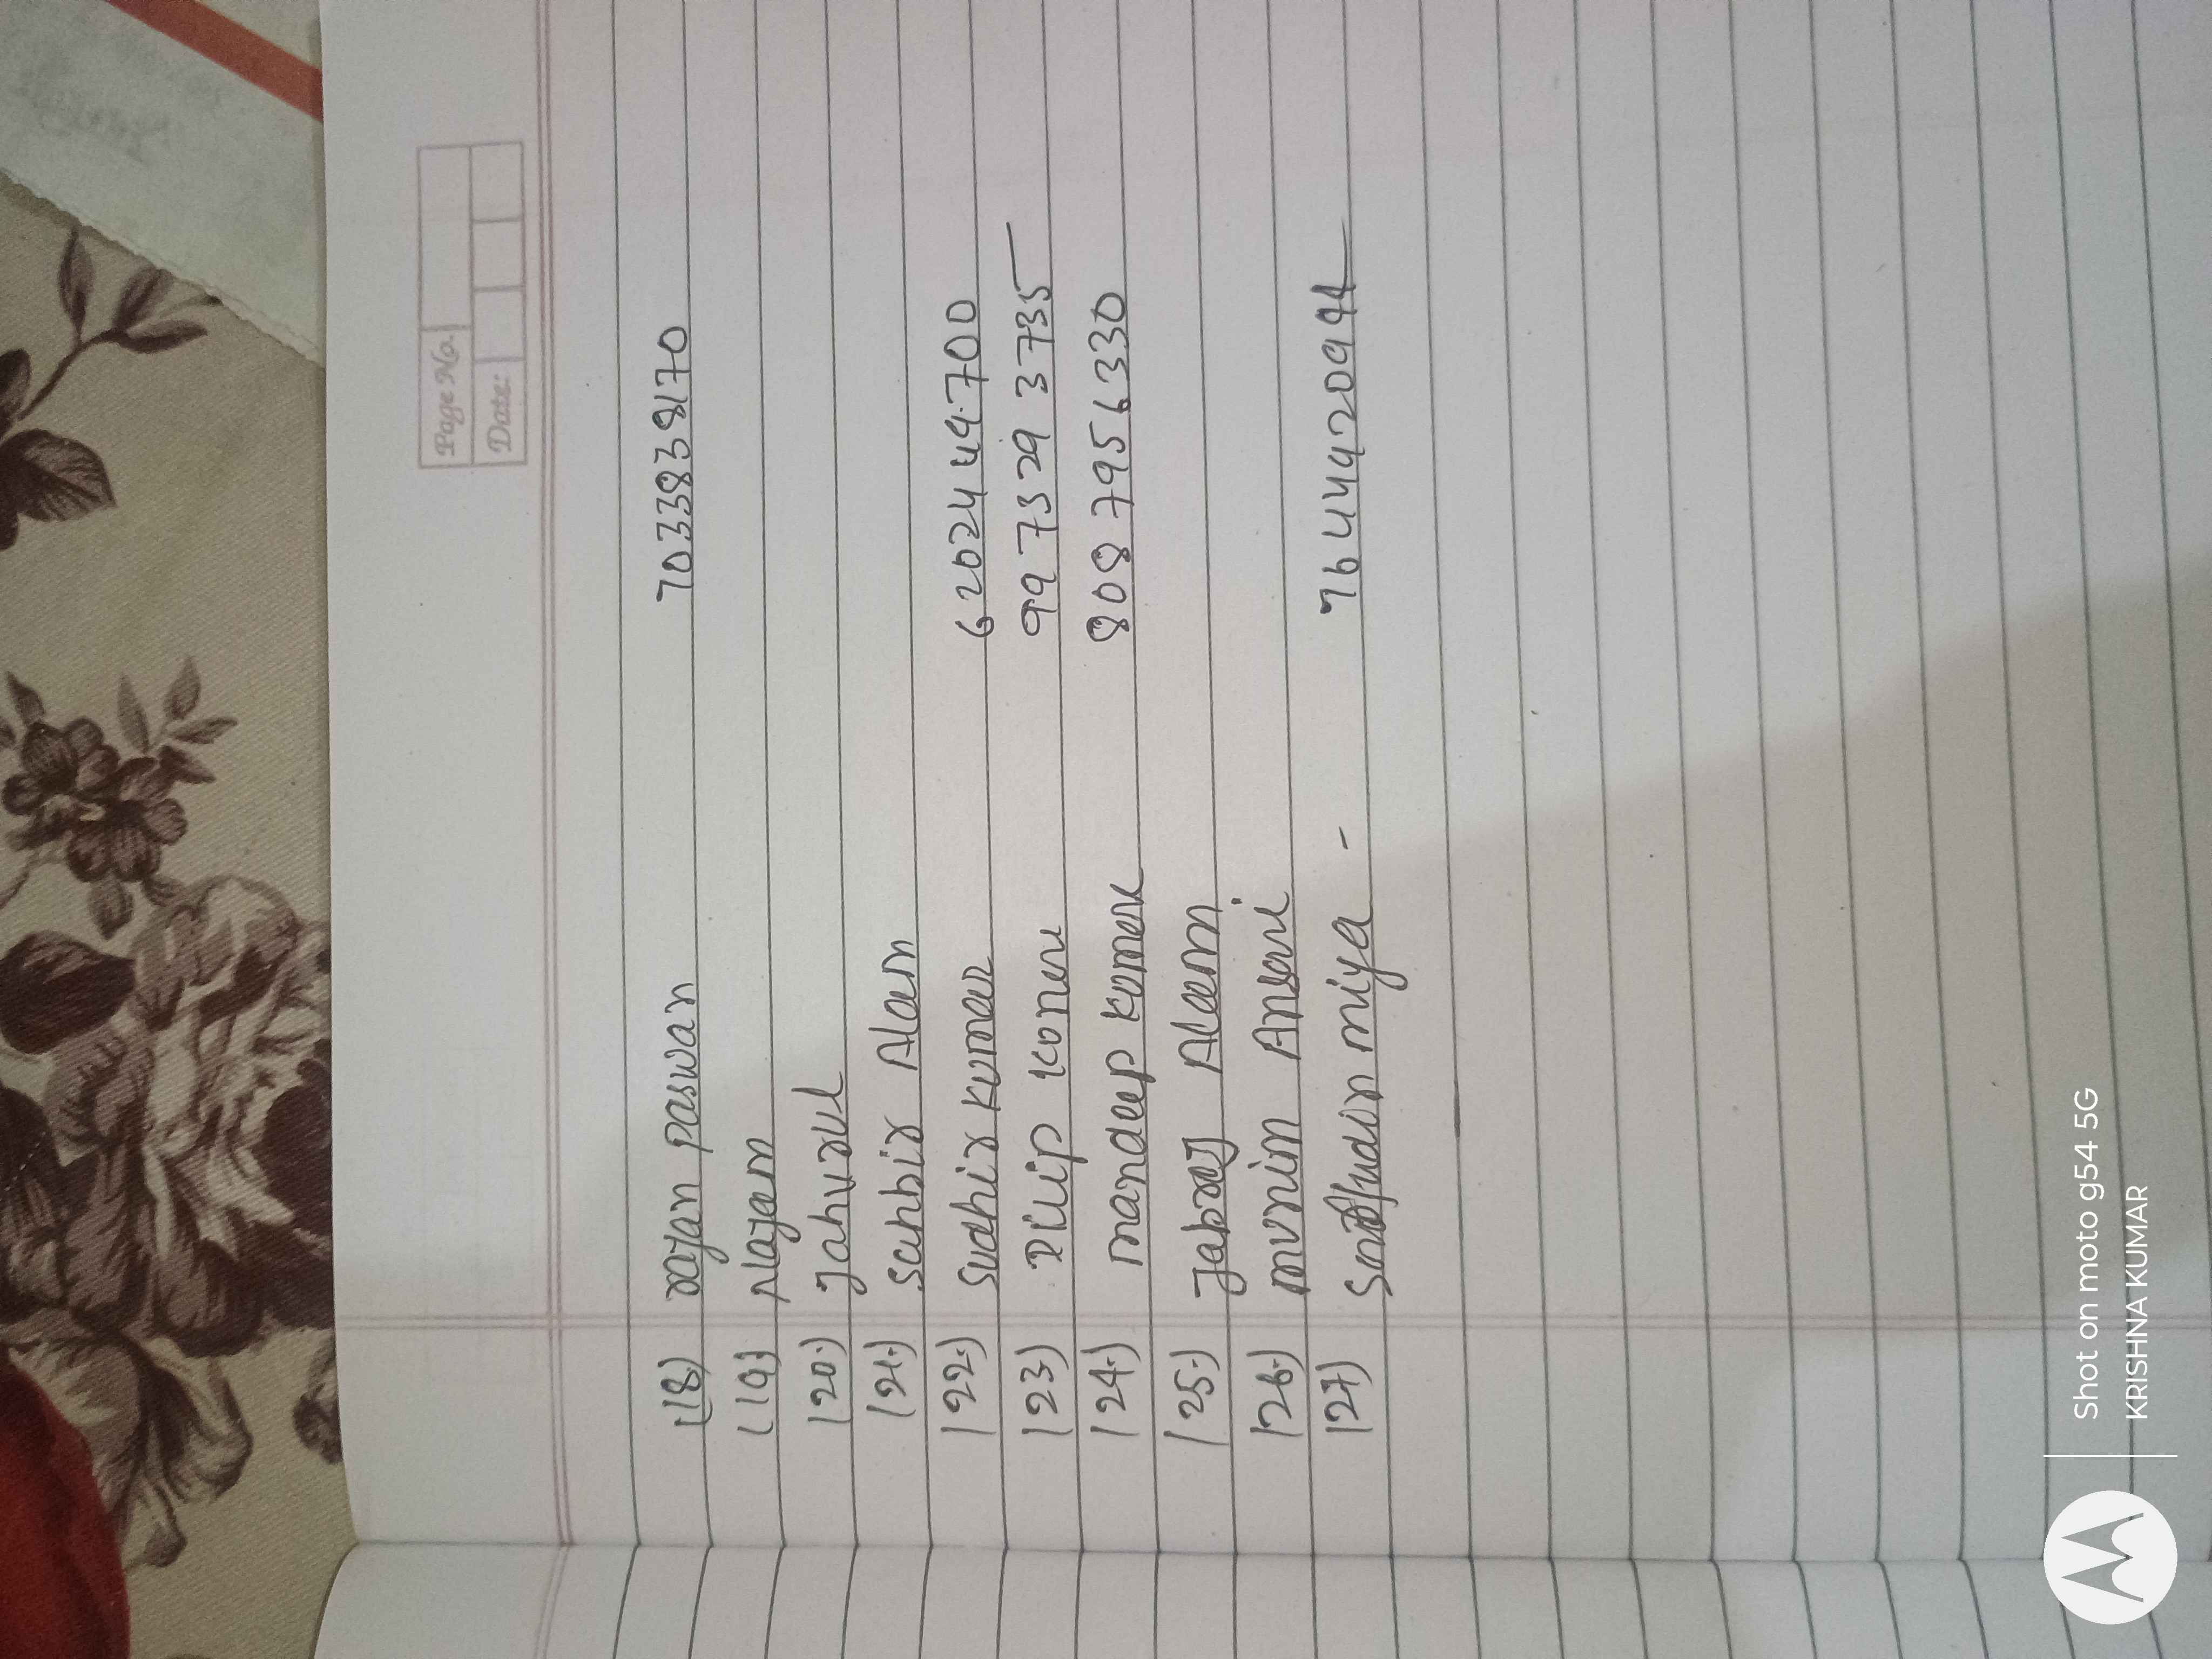 Page No.
Date:
(18.) rajan paswan 7033838170
(19.) Najam
(20.) Jahurul
(21.) Sahbir Alam
(22.) Sudhir kumar 6202449700
(23.) Dilip 9973293735
(24.) mandeep kumar 8087956330
(25.) Alam
(26.) munim Ansari
(27) miya - 7644920994
Shot on moto g54 5G
KRISHNA KUMAR